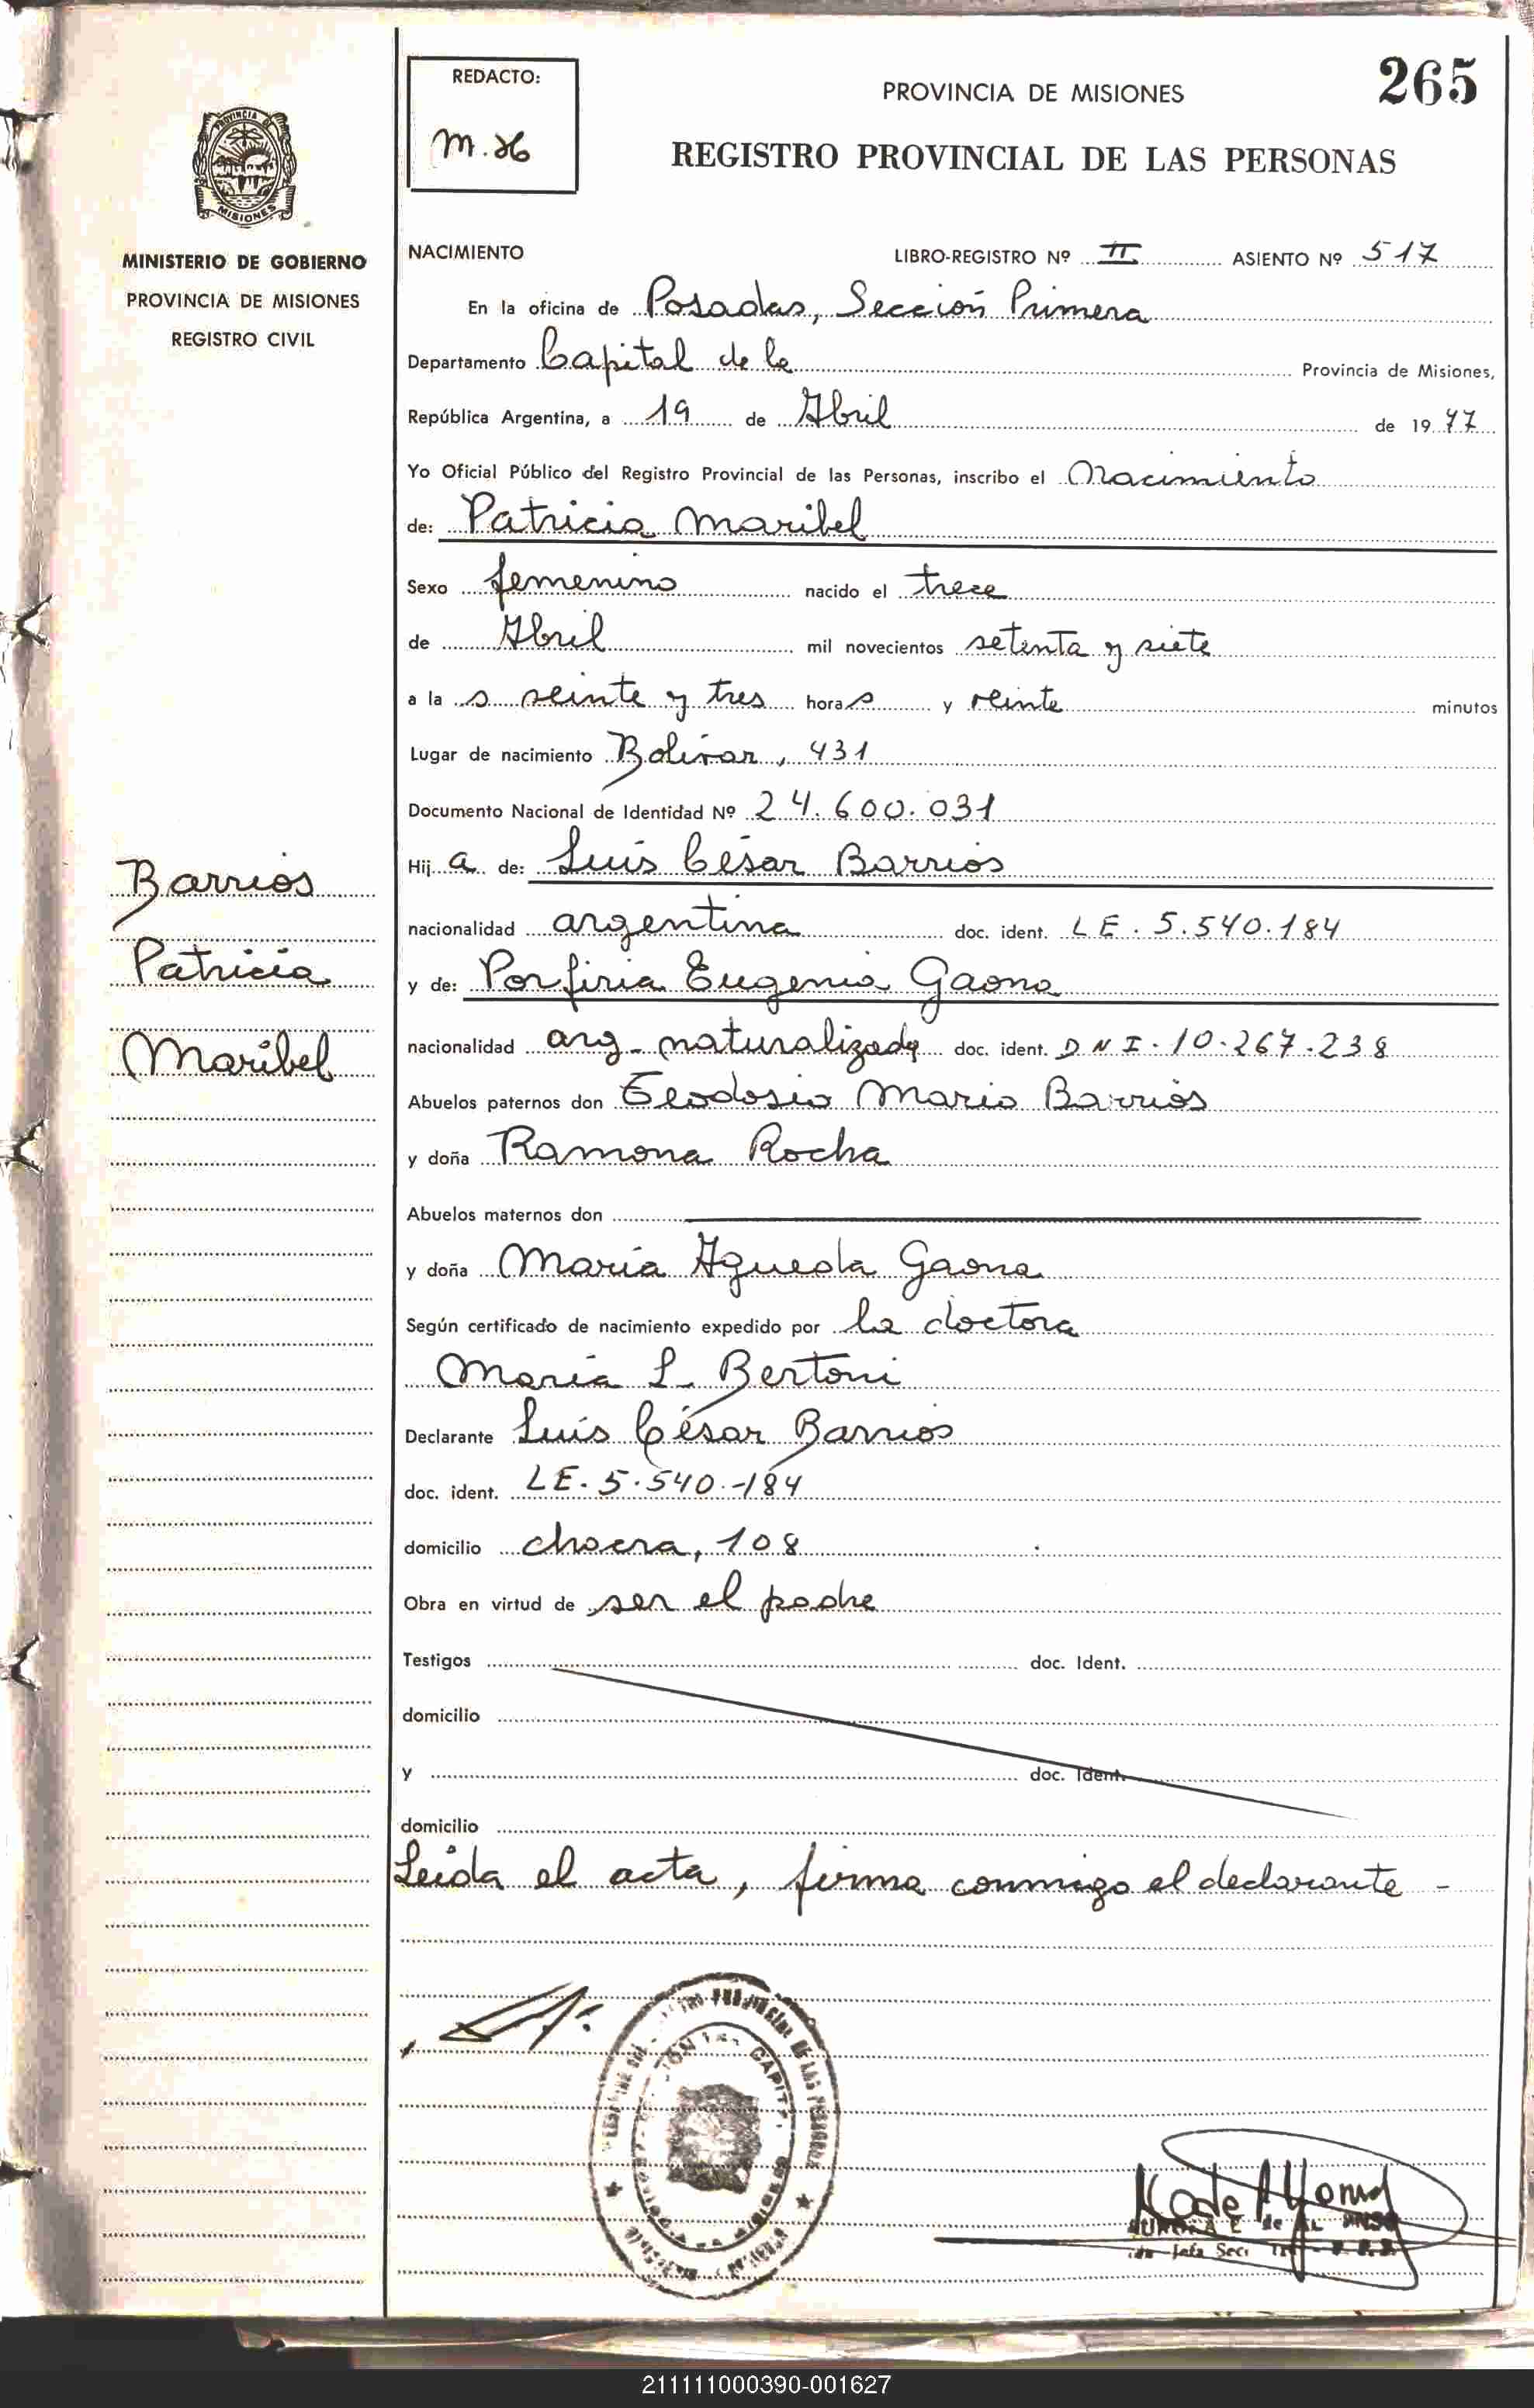 REDACTO:
PROVINCIA DE MISIONES
265
REGISTRO PROVINCIAL DE LAS PERSONAS
PROVINCIA
MISIONES
MINISTERIO DE GOBIERNO
PROVINCIA DE MISIONES
REGISTRO CIVIL
NACIMIENTO LIBRO-REGISTRO Nº II ASIENTO Nº 517
En la oficina de Posadas, Sección Primera
Departamento Capital de la Provincia de Misiones,
República Argentina, a 19 de Abril de 1977
Yo Oficial Público del Registro Provincial de las Personas, inscribo el Nacimiento
de: Patricia Maribel
Sexo femenino nacido el trece
de Abril mil novecientos setenta y siete
a la s veinte y tres hora s y veinte minutos
Lugar de nacimiento Bolívar, 431
Documento Nacional de Identidad Nº 24.600.031
Hij a de: Luis César Barrios
nacionalidad argentina doc. ident. LE. 5.540.184
y de: Porfiria Eugenia Gaona
nacionalidad arg- naturalizada doc. ident. DNI. 10.267.238
Abuelos paternos don Teodosio Mario Barrios
y doña Ramona Rocha
Abuelos maternos don
y doña María Agueda Gaona
Según certificado de nacimiento expedido por la doctora
María L. Bertoni
Declarante Luis César Barrios
doc. ident. LE. 5.540.-184
domicilio chacra, 108
Obra en virtud de ser el padre
Testigos doc. Ident.
domicilio
y doc. Ident.
domicilio
Leída el acta, firma conmigo el declarante -
Barrios
Patricia
Maribel
211111000390-001627